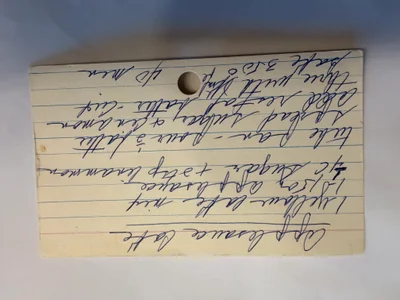 Applesauce Cake
1 yellow cake mix
1 - 15 oz applesauce
¼ C sugar + 2 tsp cinnamon
tube pan - pour ½ batter
spread sugar & cinnamon
add rest of batter - cut
thru with knife
bake 350° 40 min